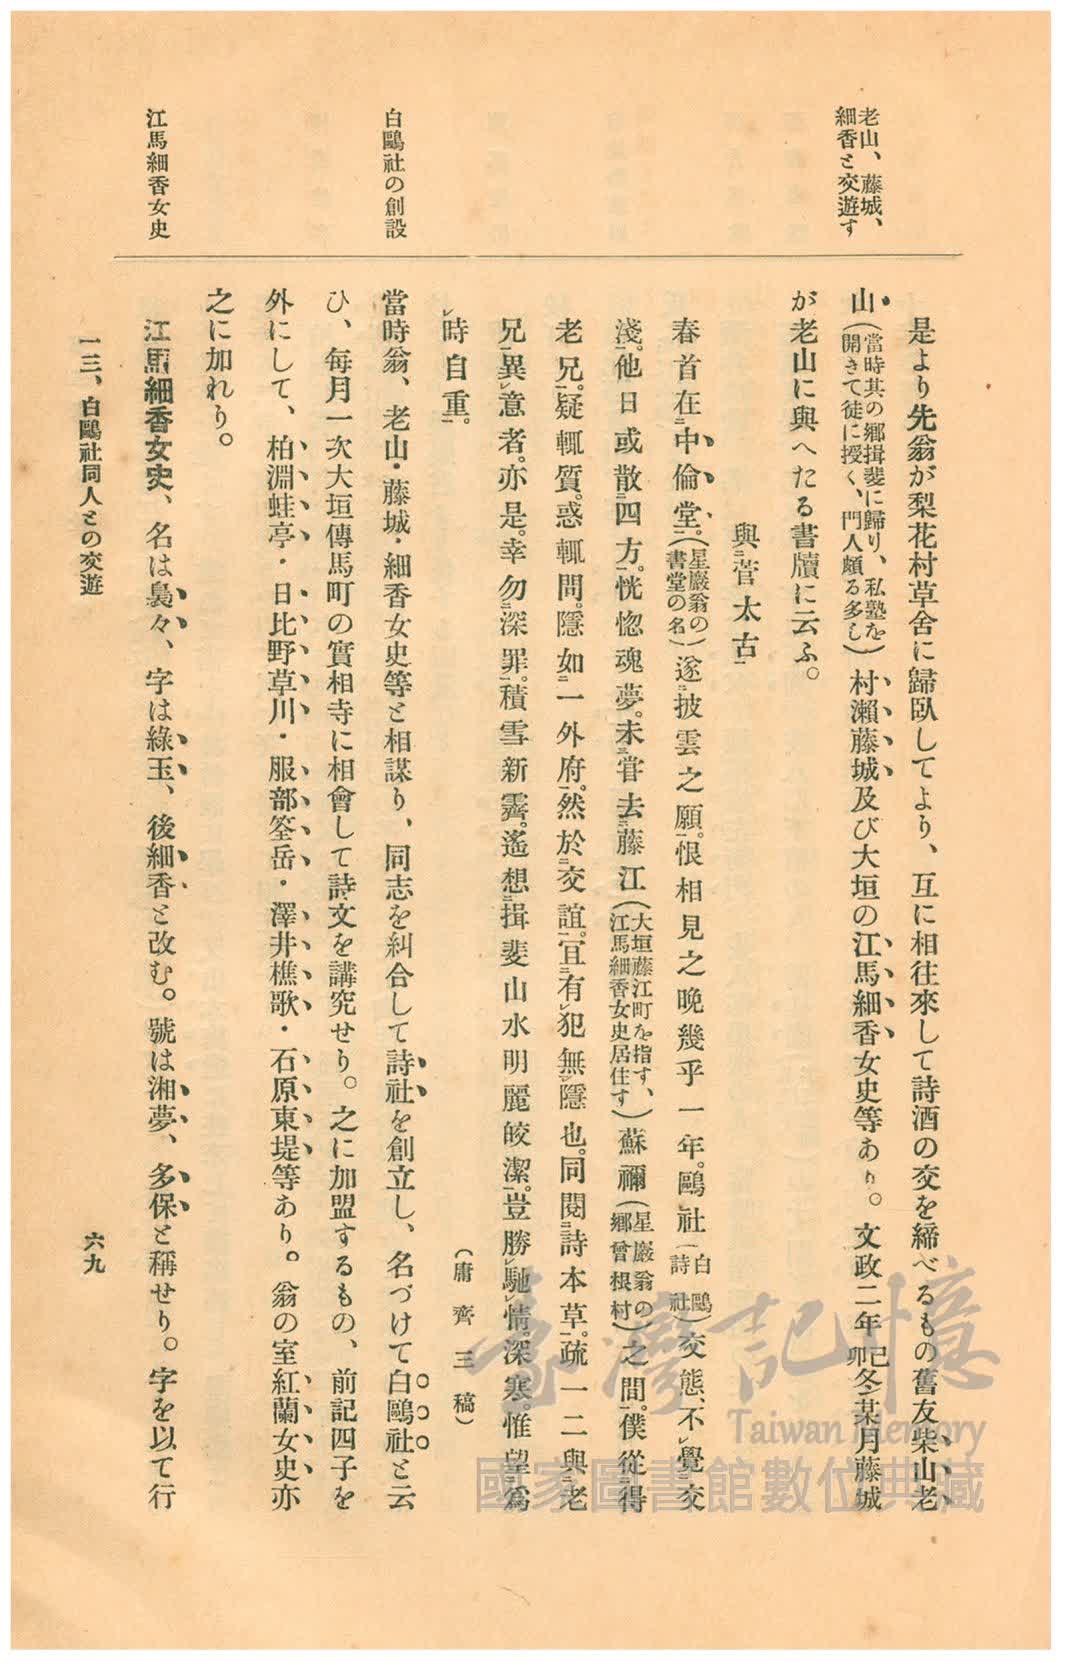 老山、藤城、
細香と交遊す
白鷗社の創設
江馬細香女史
是より先翁が梨花村草舍に歸臥してより、互に相往來して詩酒の交を締べるもの舊友柴山老
山（當時其の鄕揖斐に歸り、私塾を開きて徒に授く、門人頗る多し）村瀨藤城及び大垣の江馬細香女史等あり。文政二年己卯冬某月藤城
が老山に與へたる書牘に云ふ。
與二菅太古一
春首在二中倫堂一。（星巖翁の書堂の名）遂二披雲之願一。恨相見之晩幾乎一年。鷗社（白鷗詩社）交態、不レ覺二交
淺一。他日或散二四方一。恍惚魂夢。未三嘗去二藤江（大垣藤江町を指す、江馬細香女史居住す）蘇禰（星巖翁の鄕曾根村）之間一。僕從レ得二
老兄一。疑輒質。惑輒問。隱如二一外府一。然於二交誼一。宜二有レ犯無一レ隱也。同閱二詩本草一。疏一二與二老
兄一異レ意者。亦是。幸勿二深罪一。積雪新霽。遙想二揖斐山水明麗皎潔一。豈勝二馳情一。深寒。惟望二爲
レ時自重一。
（庸齊三稿）
當時翁、老山・藤城・細香女史等と相謀り、同志を糾合して詩社を創立し、名づけて白鷗社と云
ひ、每月一次大垣傳馬町の實相寺に相會して詩文を講究せり。之に加盟するもの、前記四子を
外にして、柏淵蛙亭・日比野草川・服部筌岳・澤井樵歌・石原東堤等あり。翁の室紅蘭女史亦
之に加れり。
江馬細香女史、名は裊々、字は綠玉、後細香と改む。號は湘夢、多保と稱せり。字を以て行
一三、白鷗社同人との交遊
六九
臺灣記憶
Taiwan Memory
國家圖書館數位典藏